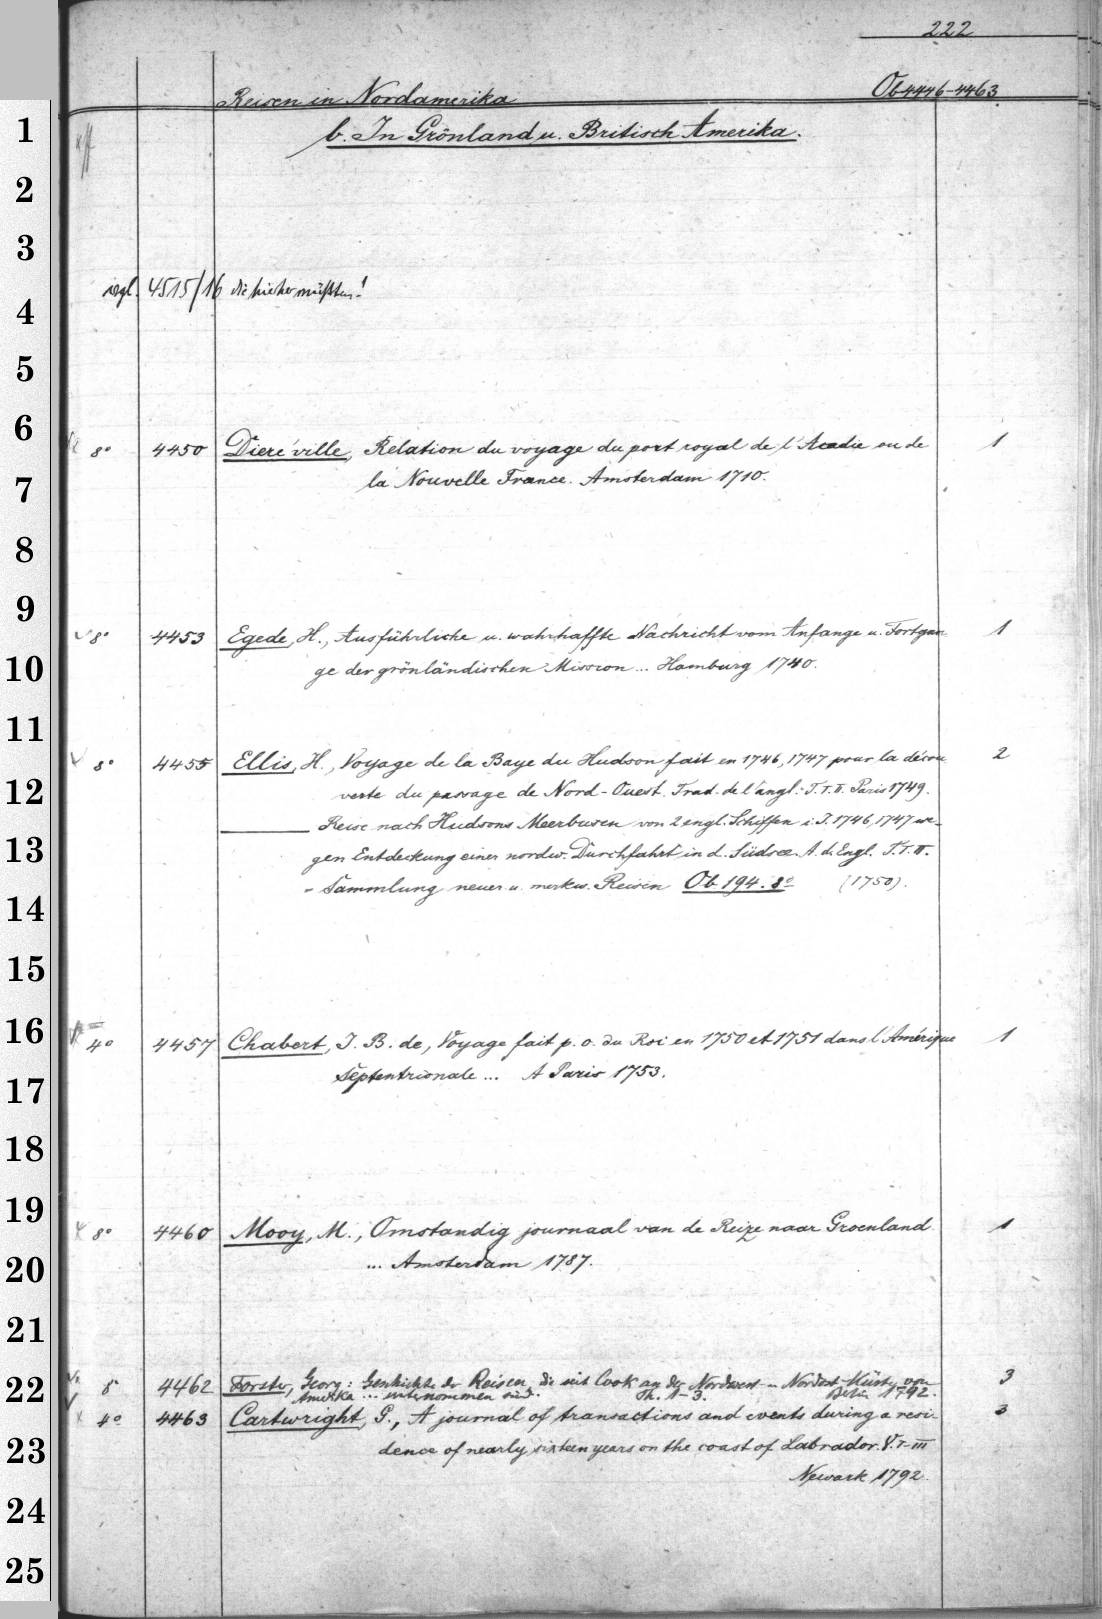 222
Reisen in Nordamerika Ob 4446-4463
b. In Grönland u. Britisch Amerika.
vgl. 4515/16 die hierher müßten!
8° 4450 Dieréville, Relation du voyage du port royal de l'Acadie ou de 1
la Nouvelle France. Amsterdam 1710.
8° 4453 Egede, H., Ausführliche u. wahrhaffte Nachricht vom Anfange u. Fortgan- 1
ge der grönländischen Mission ... Hamburg 1740.
8° 4455 Ellis, H., Voyage de la Baye du Hudson fait en 1746, 1747 pour la décou- 2
verte du passage de Nord-Ouest. Trad. de l'angl. T. I. II. Paris 1749.
Reise nach Hudsons Meerbusen von 2 engl. Schiffen i. J. 1746, 1747 we-
gen Entdeckung einer nordw. Durchfahrt in d. Südsee. A. d. Engl. T. I. II.
= Sammlung neuer u. merkw. Reisen Ob 194. 8° (1750).
4° 4457 Chabert, J. B. de, Voyage fait p. o. du Roi en 1750 et 1751 dans l'Amérique 1
septentrionale ... A Paris 1753.
8° 4460 Mooy, M., Omstandig journaal van de Reize naar Groenland 1
... Amsterdam 1787.
8° 4462 Forster, Georg: Geschichte der Reisen, die seit Cook an der Nordwest- u. Nordost-Küste von 3
Amerika ... unternommen sind. Th. 1-3. Berlin 1792.
4° 4463 Cartwright, G., A journal of transactions and events during a resi- 3
dence of nearly sixteen years on the coast of Labrador. V. I-III
Newark 1792.
1
2
3
4
5
6
7
8
9
10
11
12
13
14
15
16
17
18
19
20
21
22
23
24
25